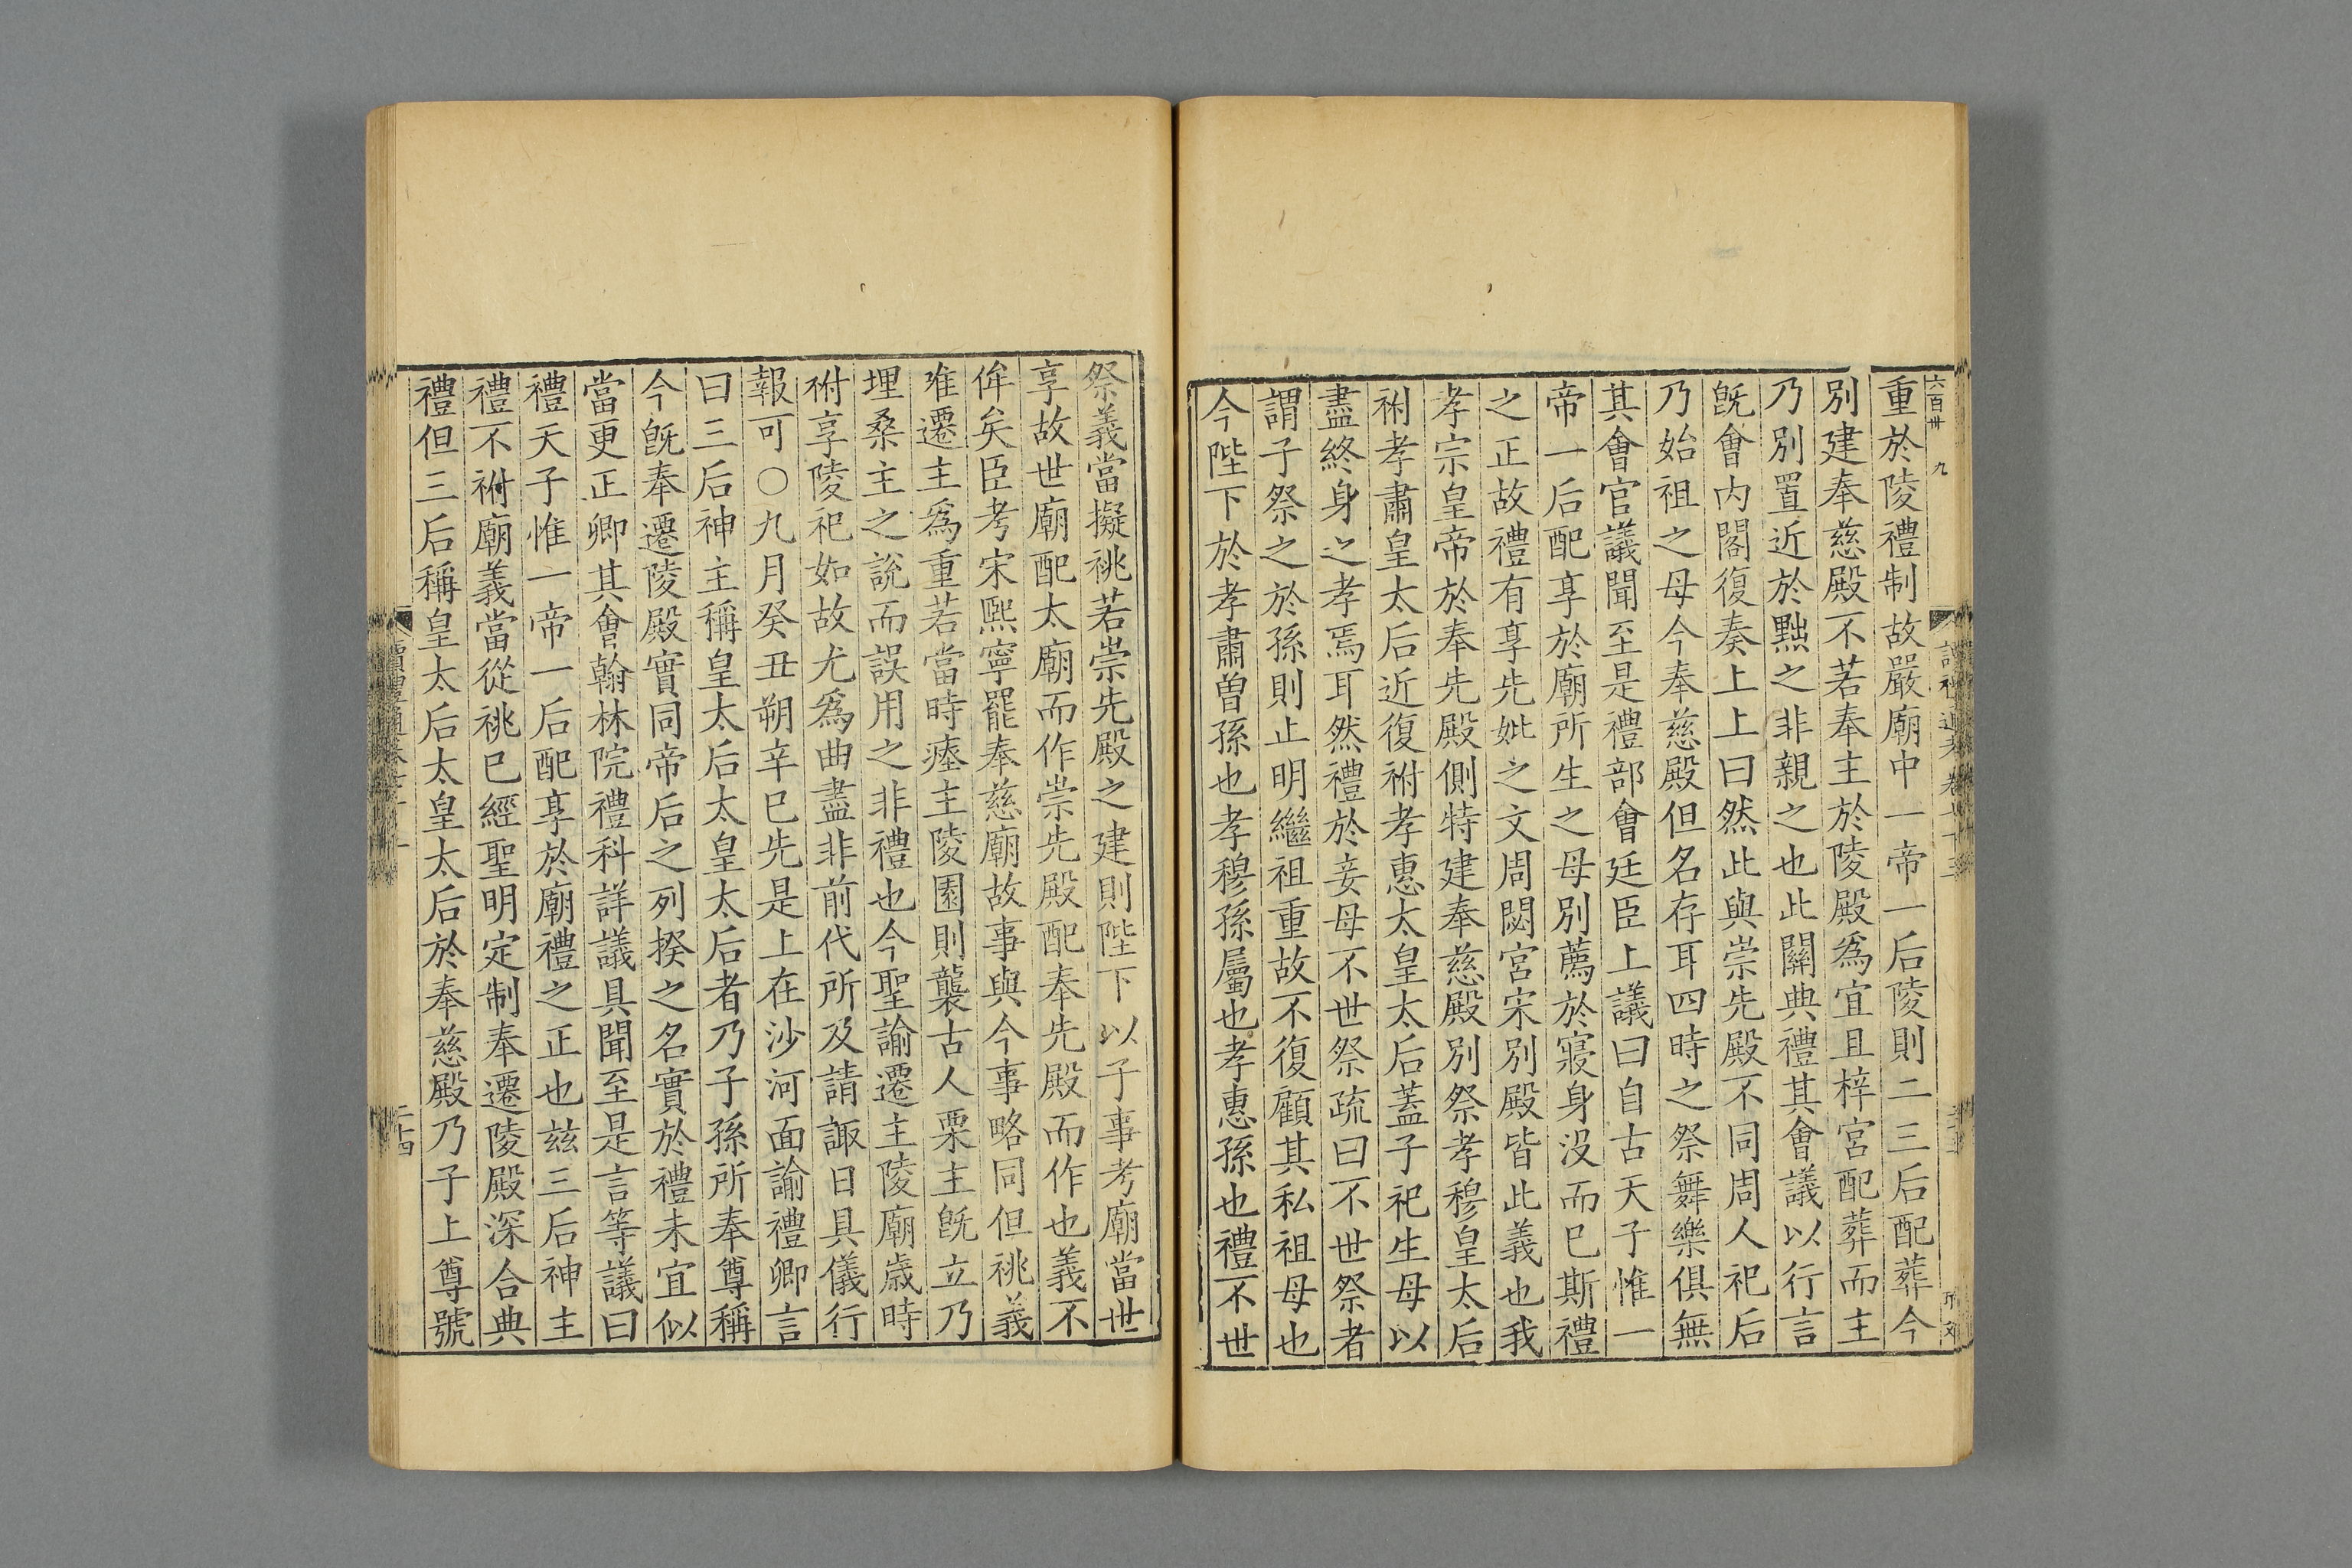 六百卅 九
重於陵禮制故嚴廟中一帝一后陵則二三后配葬今
別建奉慈殿不若奉主於陵殿爲宜且梓宮配葬而主
乃別置近於黜之非親之也此關典禮其會議以行言
旣會內閣復奏上上曰然此與崇先殿不同周人祀后
乃始祖之母今奉慈殿但名存耳四時之祭舞樂俱無
其會官議聞至是禮部會廷臣上議曰自古天子惟一
帝一后配享於廟所生之母別薦於寢身沒而已斯禮
之正故禮有享先妣之文周閟宮宋別殿皆此義也我
孝宗皇帝於奉先殿側特建奉慈殿別祭孝穆皇太后
祔孝肅皇太后近復祔孝惠太皇太后蓋子祀生母以
盡終身之孝焉耳然禮於妾母不世祭疏曰不世祭者
謂子祭之於孫則止明繼祖重故不復顧其私祖母也
今陛下於孝肅曾孫也孝穆孫屬也孝惠孫也禮不世
祭義當擬祧若崇先殿之建則陛下以子事考廟當世
享故世廟配太廟而作崇先殿配奉先殿而作也義不
侔矣臣考宋熙寧罷奉慈廟故事與今事略同但祧義
唯遷主爲重若當時瘞主陵園則襲古人栗主旣立乃
埋桑主之說而誤用之非禮也今聖諭遷主陵廟歲時
祔享陵祀如故尤爲曲盡非前代所及請諏日具儀行
報可○九月癸丑朔辛巳先是上在沙河面諭禮卿言
曰三后神主稱皇太后太皇太后者乃子孫所奉尊稱
今旣奉遷陵殿實同帝后之列揆之名實於禮未宜似
當更正卿其會翰林院禮科詳議具聞至是言等議曰
禮天子惟一帝一后配享於廟禮之正也茲三后神主
禮不祔廟義當從祧已經聖明定制奉遷陵殿深合典
禮但三后稱皇太后太皇太后於奉慈殿乃子上尊號
二十四